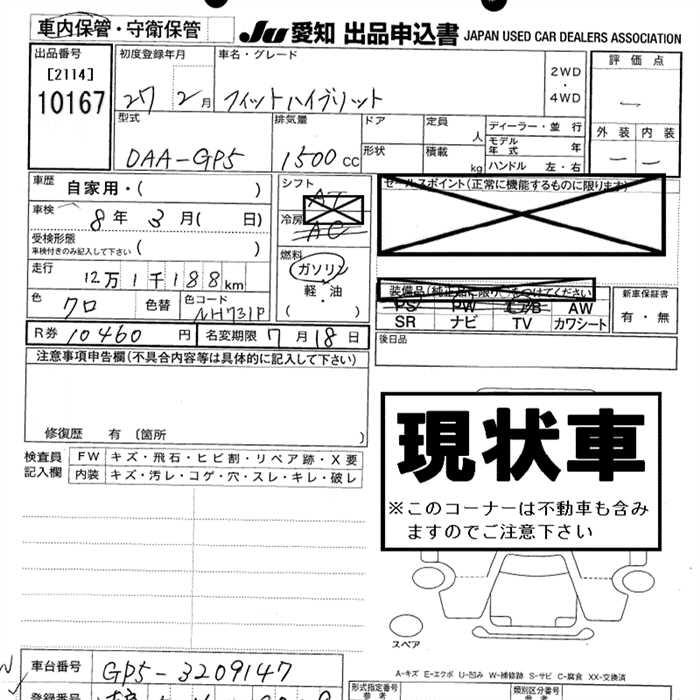 車内保管・守衛保管
Ju 愛知 出品申込書 JAPAN USED CAR DEALERS ASSOCIATION
出品番号
[2114]
10167
初度登録年月
27 2月
車名・グレード
フィットハイブリット
2WD
・
4WD
評価点
—
外装 内装
— —
型式
DAA-GP5
排気量
1500cc
ドア
形状
定員
人
積載
kg
ディーラー・並行
モデル年式 年
ハンドル 左・右
車歴
自家用・( )
車検
8年 3月( 日)
受検形態
車検付きのみ記入して下さい ( )
走行
12万1千188km
色
クロ
色替
色コード
NH731P
シフト
AT
冷房
AC
燃料
ガソリン
軽・油
( )
セールスポイント(正常に機能するものに限ります)
装備品(純正品に限り つけてください
PS PW AW
SR ナビ TV カワシート
新車保証書
有・無
後日品
R券 10460円 名変期限 7月18日
注意事項申告欄(不具合内容等は具体的に記入して下さい)
修復歴 有 〔箇所 〕
検査員記入欄
FW キズ・飛石・ヒビ割・リペア跡・X要
内装 キズ・汚レ・コゲ・穴・スレ・キレ・破レ
現状車
※このコーナーは不動車も含み
ますのでご注意下さい
スペア
A-キズ E-エクボ U-凹み W-補修跡 S-サビ C-腐食 XX-交換済
車台番号
GP5-3209147
登録番号
形式指定番号
参考
類別区分番号
参考